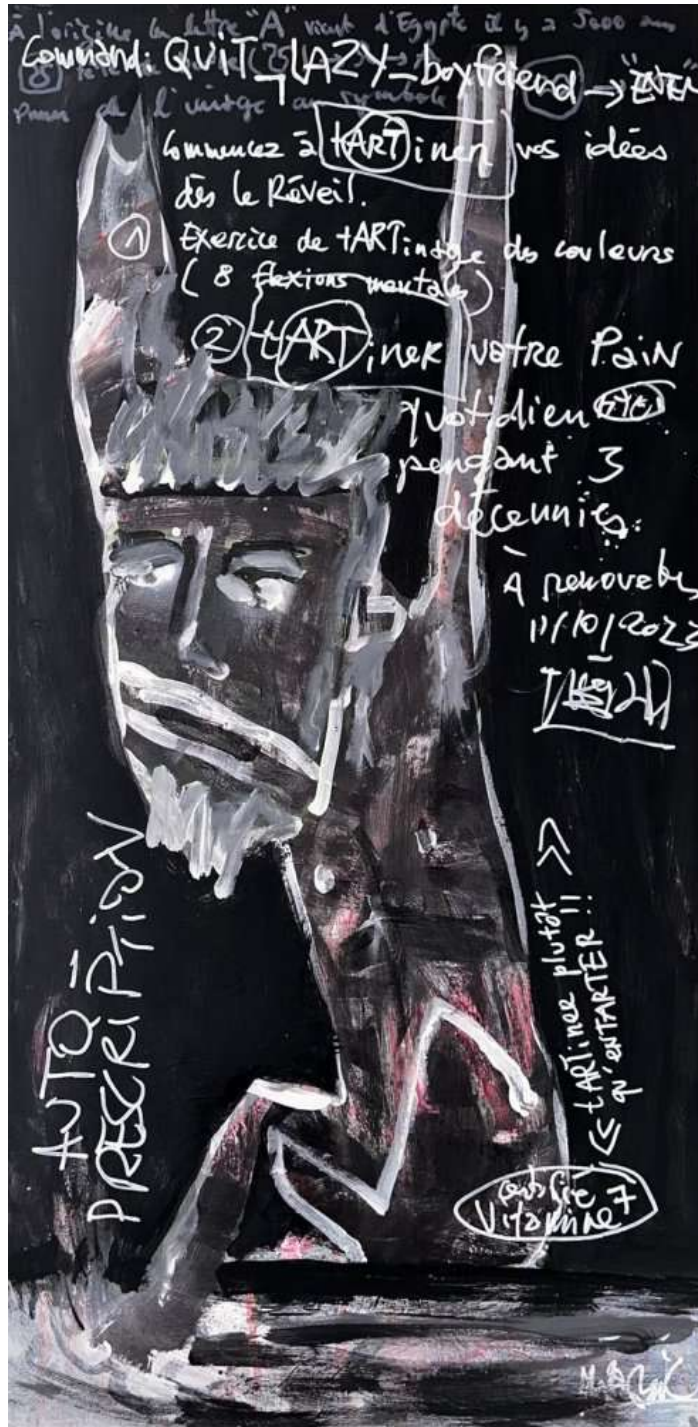 À l'origine la lettre "A" vient d'Egypte il y a 5000 ans
8
de l'image au symbole
Command: QUIT_LAZY_boyfriend → "ENTER"
Commencez à tARTiner vos idées
dès le Réveil.
1 Exercice de tARTinage des couleurs
(8 flexions mentales)
2 tARTiner votre PaiN
quotidien
pendant 3
décennies.
À renouveler
11/10/2023
AUTO
PRESCRIPTION
<< tARTiner plutôt
qu'ENTARTER!! >>
certifié
Vitamine 7